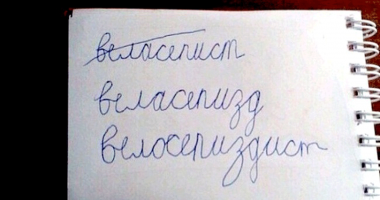 веласепист
веласепизд
велосепиздист